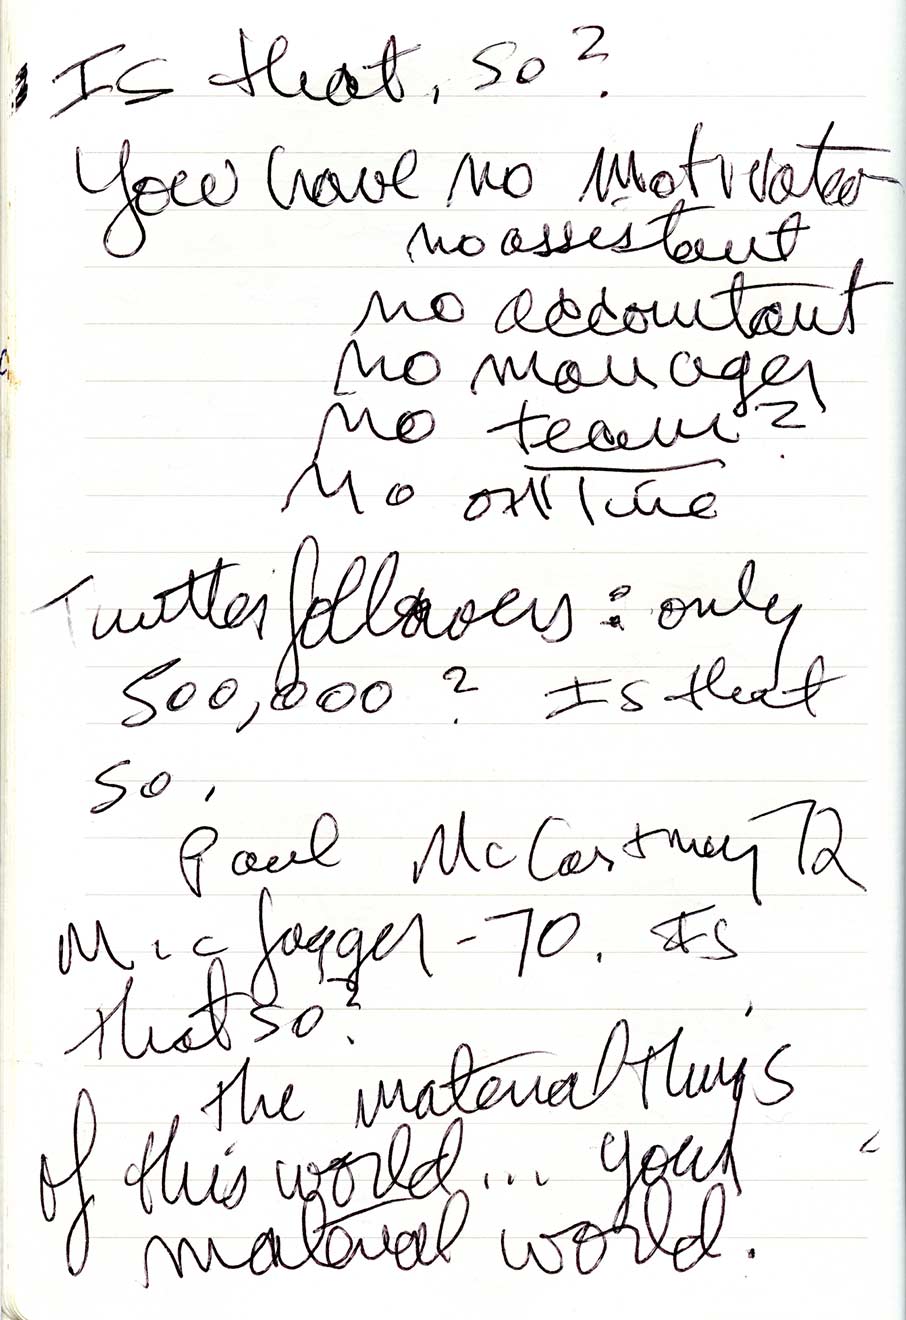 Is that, so?
You have no motivator
no assistant
no accountant
no manager
no team?
no
Twitter followers: only
500,000? Is that
so,
Paul McCartney 72
Mic Jagger - 70. Is
that so?
the material things
of this world... your
material world.